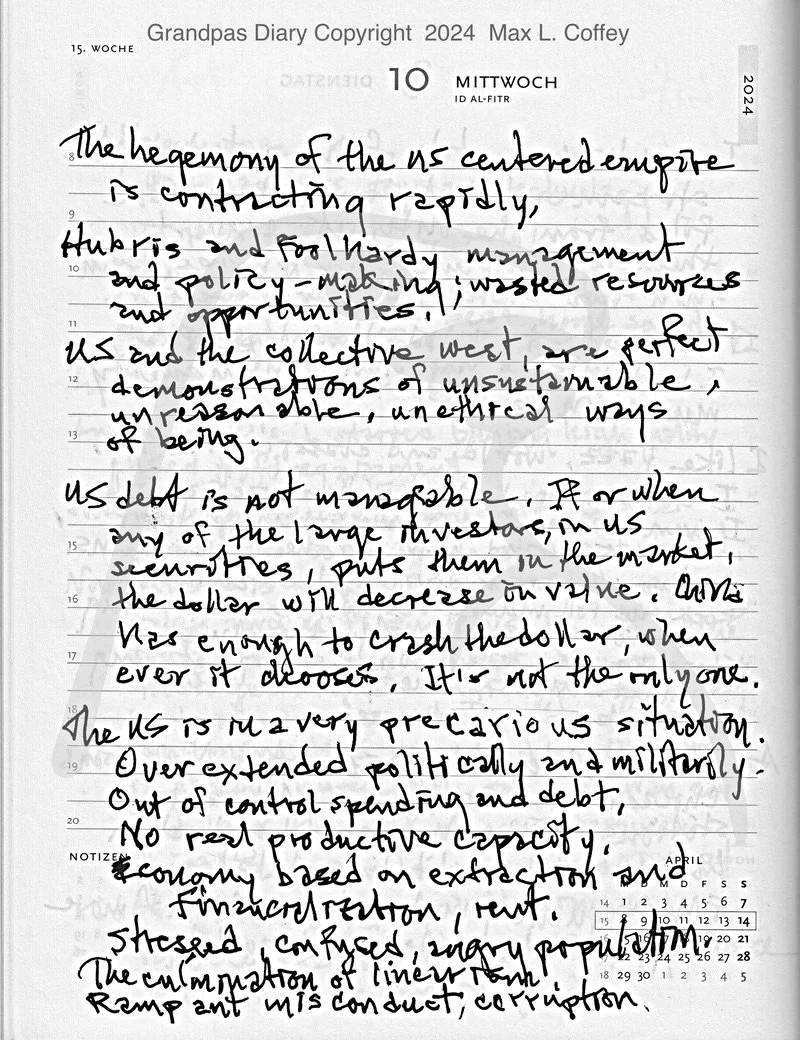 Grandpas Diary Copyright 2024 Max L. Coffey
15. WOCHE
10 MITTWOCH
ID AL-FITR
2024
8 The hegemony of the us centered empire
is contracting rapidly,
9
Hubris and Foolhardy management
10 and policy-making; wasted resources
and opportunities.
11
US and the collective west, are perfect
12 demonstrations of unsustainable,
unreasonable, unethical ways
13 of being.
US debt is not managable. If or when
any of the large investors, in US
15
securities, puts them in the market,
16 the dollar will decrease in value. China
has enough to crash the dollar, when
17
ever it chooses. It is not the only one.
18
The US is in a very precarious situation.
19 Over extended politically and militarily.
Out of control spending and debt,
20
No real productive capacity.
NOTIZEN
APRIL
Economy based on extraction and
Financialization, rent.
Stressed, confused, angry population.
The culmination of linearism.
Rampant misconduct, corruption.
M D F S S
14 1 2 3 4 5 6 7
15 8 9 10 11 12 13 14
19 20 21
22 23 24 25 26 27 28
18 29 30 1 2 3 4 5